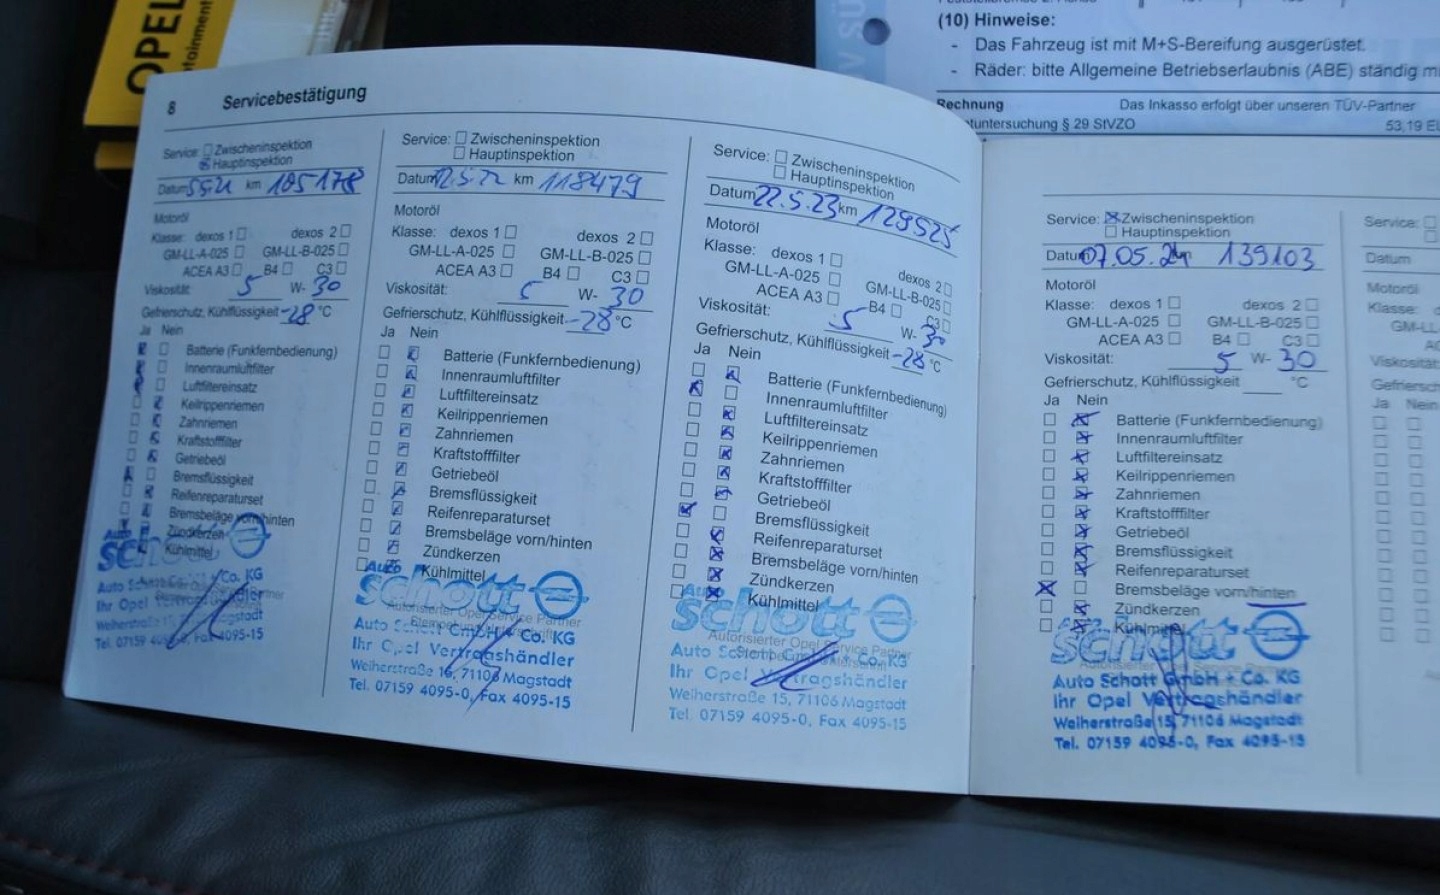 OPEL
(10) Hinweise:
- Das Fahrzeug ist mit M+S-Bereifung ausgerüstet.
- Räder: bitte Allgemeine Betriebserlaubnis (ABE) ständig
Rechnung Das Inkasso erfolgt über unseren TÜV-Partner
§ 29 StVZO 53,19
8 Servicebestätigung
Service: Zwischeninspektion
Hauptinspektion
Datum 5.5.21 km 105178
Motoröl
Klasse: dexos 1 dexos 2
GM-LL-A-025 GM-LL-B-025
ACEA A3 B4 C3
Viskosität: 5 W- 30
Gefrierschutz, Kühlflüssigkeit -28 °C
Ja Nein
Batterie (Funkfernbedienung)
Innenraumluftfilter
Luftfiltereinsatz
Keilrippenriemen
Zahnriemen
Kraftstofffilter
Getriebeöl
Bremsflüssigkeit
Reifenreparaturset
Bremsbeläge vorn/hinten
Zündkerzen
Kühlmittel
Auto
schott
Auto Schott Co. KG
Ihr Opel Vertragshändler
Magstadt
Tel. 07159 Fax 4095-15
Service: Zwischeninspektion
Hauptinspektion
Datum 12.5.22 km 118479
Motoröl
Klasse: dexos 1 dexos 2
GM-LL-A-025 GM-LL-B-025
ACEA A3 B4 C3
Viskosität: 5 W- 30
Gefrierschutz, Kühlflüssigkeit -28 °C
Ja Nein
Batterie (Funkfernbedienung)
Innenraumluftfilter
Luftfiltereinsatz
Keilrippenriemen
Zahnriemen
Kraftstofffilter
Getriebeöl
Bremsflüssigkeit
Reifenreparaturset
Bremsbeläge vorn/hinten
Zündkerzen
Kühlmittel
Auto
schott
Autorisierter Opel Service Partner
Auto Schott GmbH + Co. KG
Ihr Opel Vertragshändler
Weiherstraße 16, 71106 Magstadt
Tel. 07159 4095-0, Fax 4095-15
Service: Zwischeninspektion
Hauptinspektion
Datum 22.5.23 km 129525
Motoröl
Klasse: dexos 1 dexos 2
GM-LL-A-025 GM-LL-B-025
ACEA A3 B4 C3
Viskosität: 5 W- 30
Gefrierschutz, Kühlflüssigkeit -28 °C
Ja Nein
Batterie (Funkfernbedienung)
Innenraumluftfilter
Luftfiltereinsatz
Keilrippenriemen
Zahnriemen
Kraftstofffilter
Getriebeöl
Bremsflüssigkeit
Reifenreparaturset
Bremsbeläge vorn/hinten
Zündkerzen
Kühlmittel
Auto
schott
Autorisierter Opel Service Partner
Auto Schott Co. KG
Ihr Opel Vertragshändler
Weiherstraße 15, 71106 Magstadt
Tel. 07159 4095-0, Fax 4095-15
Service: Zwischeninspektion
Hauptinspektion
Datum 07.05.24 km 139103
Motoröl
Klasse: dexos 1 dexos 2
GM-LL-A-025 GM-LL-B-025
ACEA A3 B4 C3
Viskosität: 5 W- 30
Gefrierschutz, Kühlflüssigkeit °C
Ja Nein
Batterie (Funkfernbedienung)
Innenraumluftfilter
Luftfiltereinsatz
Keilrippenriemen
Zahnriemen
Kraftstofffilter
Getriebeöl
Bremsflüssigkeit
Reifenreparaturset
Bremsbeläge vorn/hinten
Zündkerzen
Kühlmittel
schott
Autorisierter Opel Service Partner
Auto Schott GmbH + Co. KG
Ihr Opel Vertragshändler
Weiherstraße 15, 71106 Magstadt
Tel. 07159 4095-0, Fax 4095-15
Service:
Datum
Motoröl
Klasse:
GM-LL-
Viskosität:
Ja Nein